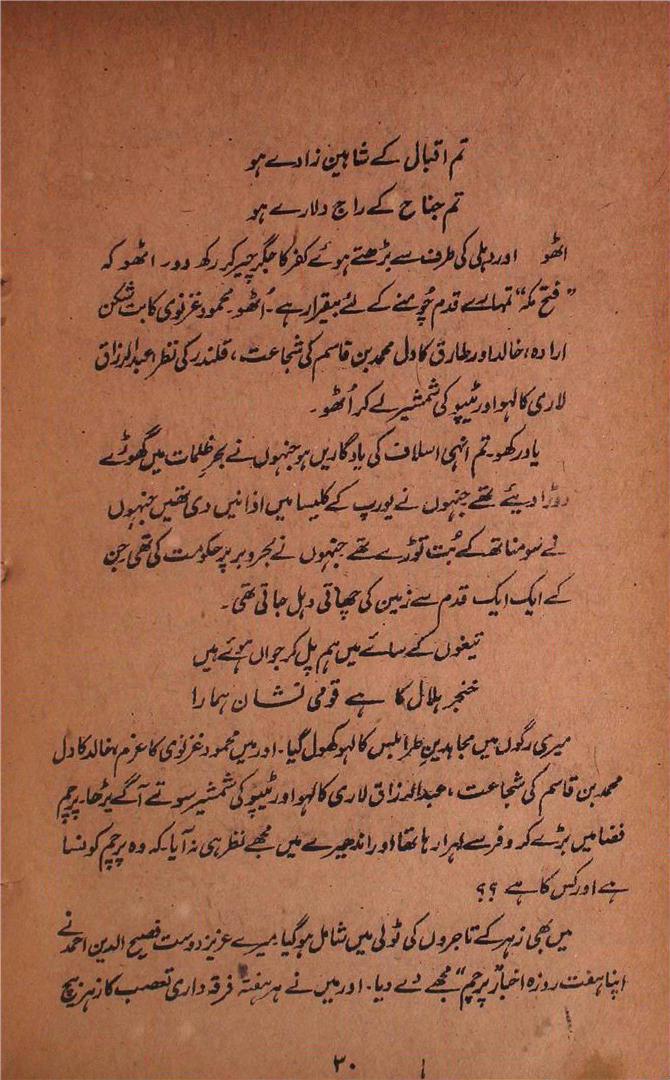 تم اقبال کے شاہین زادے ہو
تم جناح کے راج دلارے ہو
اٹھو اور دہلی کی طرف سے بڑھتے ہوئے کفر کا جگر چیر کر رکھ دو۔ اٹھو کہ
”فتح مکہ“ تمہارے قدم چُومنے کے لئے بیقرار ہے۔ اُٹھو۔ محمود غزنوی کا بت شکن
ارادہ، خالد اور طارق کا دل محمد بن قاسم کی شجاعت، قلندر کی نظر، عبدالرزاق
لاری کا لہو اور ٹیپو کی شمشیر لے کر اُٹھو۔
یاد رکھو۔ تم انہی اسلاف کی یادگاریں ہو جنہوں نے بحرِ ظلمات میں گھوڑے
دوڑا دیئے تھے جنہوں نے یورپ کے کلیسا میں اذانیں دی تھیں جنہوں
نے سومناتھ کے بُت توڑے تھے جنہوں نے بحر و بر پر حکومت کی تھی جن
کے ایک ایک قدم سے زمین کی چھاتی دہل جاتی تھی۔
تیغوں کے سائے میں ہم پل کر جواں ہوئے ہیں
خنجر ہلال کا ہے قومی نشان ہمارا
میری رگوں میں مجاہدینِ طرابلس کا لہو کھول گیا۔ اور میں محمود غزنوی کا عزم، خالد کا دل
محمد بن قاسم کی شجاعت، عبدالرزاق لاری کا لہو اور ٹیپو کی شمشیر سوتے آگے بڑھا۔ پرچم
فضا میں بڑے کروفر سے لہرا رہا تھا اور اندھیرے میں مجھے نظر ہی نہ آیا۔ کہ وہ پرچم کونسا
ہے اور کس کا ہے ؟؟
میں بھی زہر کے تاجروں کی ٹولی میں شامل ہو گیا۔ میرے عزیز دوست فصیح الدین احمد نے
اپنا ہفت روزہ اخبار ”پرچم“ مجھے دے دیا۔ اور میں نے ہر ہفتہ فرقہ داری تعصب کا زہر بیچ
۳۰